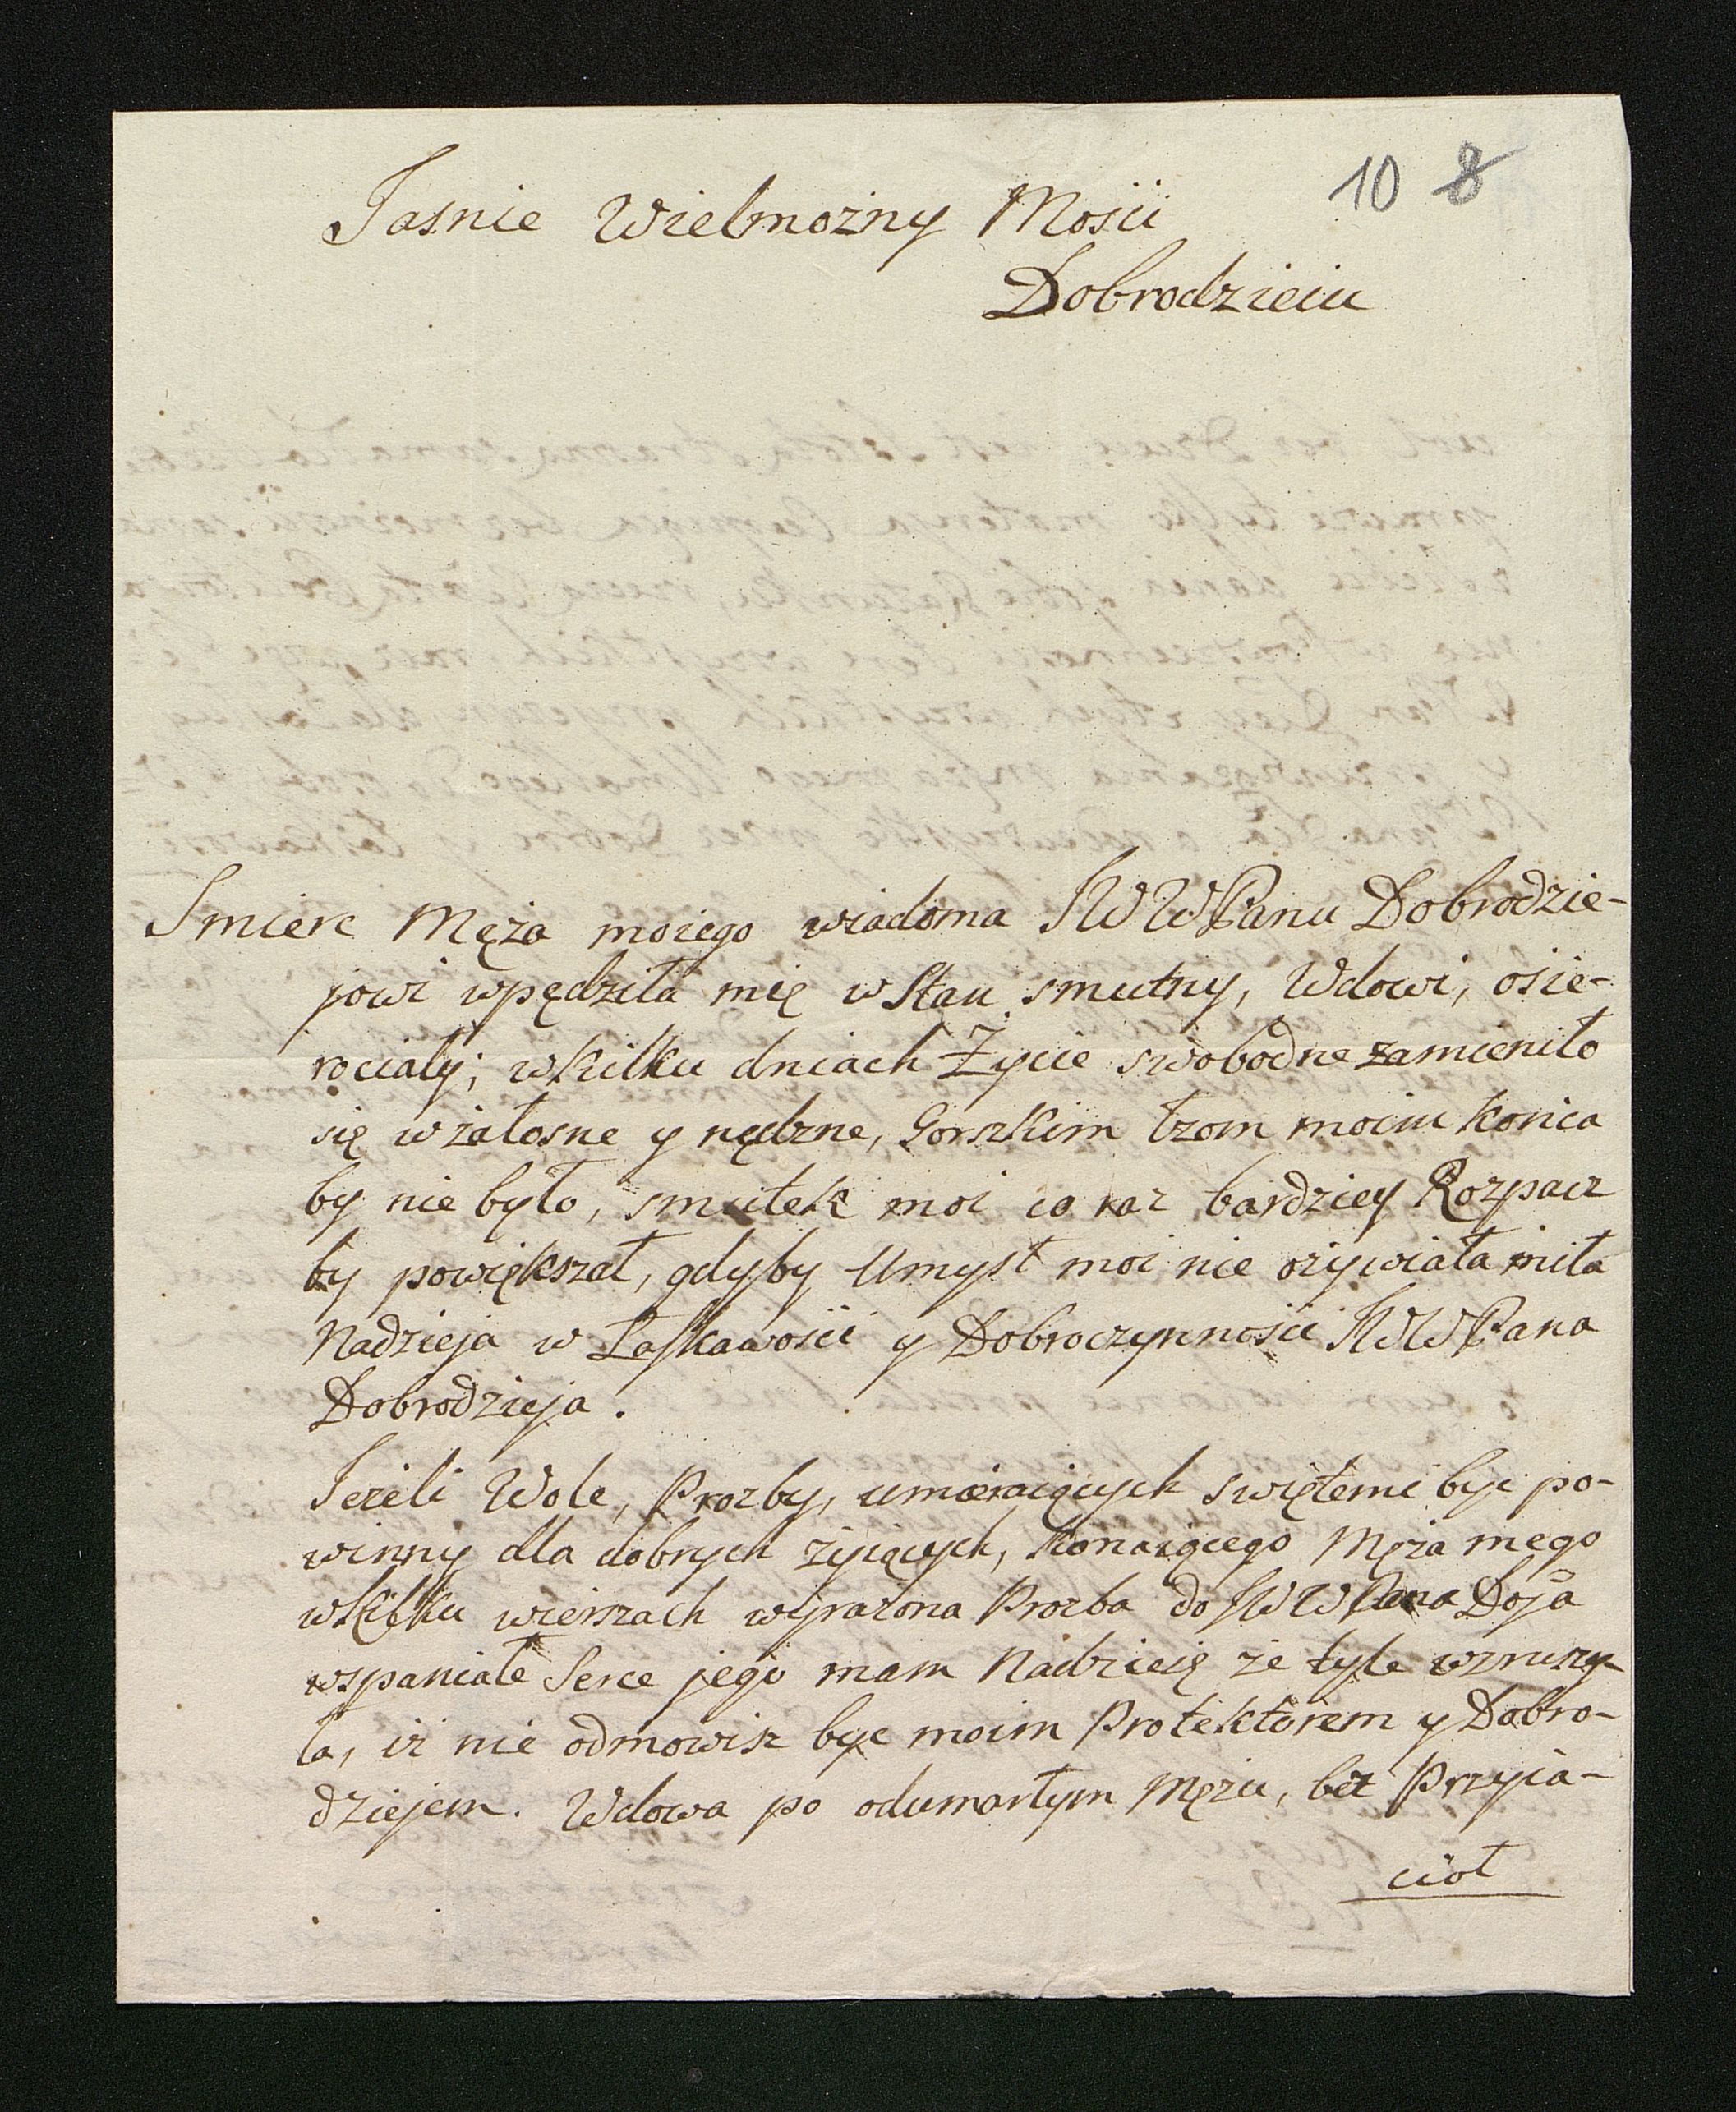 10 8
Jasnie Wielmożny Mości
Dobrodzieiu
Smierc Męża moiego wiadoma JWWPanu Dobrodzie-
jowi wpędziła mię w Stan smutny, Wdowi, osie-
rociały; w kilku dniach Życie swobodne zamieniło
się w żałosne y nędzne, Gorszkim łzom moim końca
by nie było, smutek moi co raz bardziey Rozpacz
by powiększał, gdyby Umysł moi nie ożywiała miła
Nadzieja w Łaskawości y Dobroczynności JWWPana
Dobrodzieja.
Jeżeli Wole, Prozby, umieraiących swiętemi byc po-
winny dla dobrych żyiących, konaiącego Męża mego
w kilku wierszach wyrażona Prozba do JWWPana Doja
wspaniałe Serce jego mam Nadzieię że tyle wzruszy-
ła, iż nie odmowisz byc moim Protektorem y Dobro-
dziejem. Wdowa po odumarłym Mężu, bez Przyia-
ciół